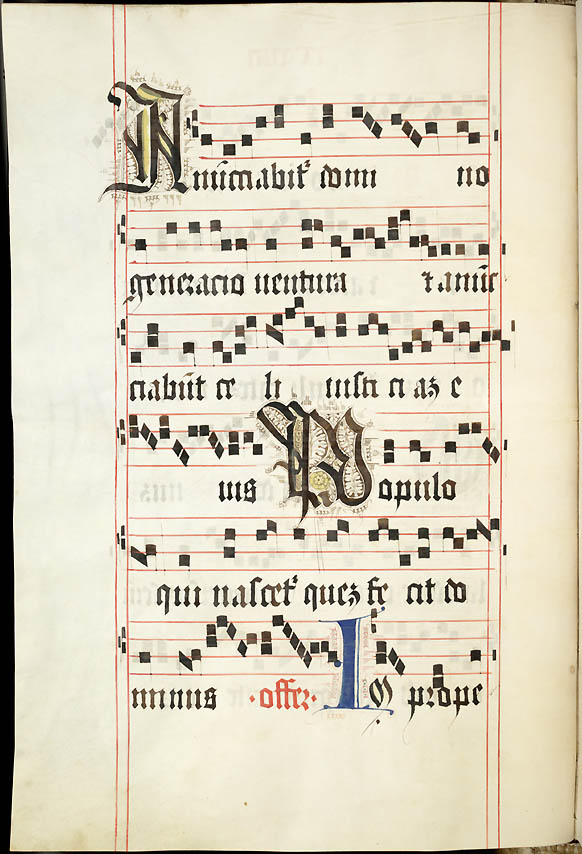 Annūciabit᷑ domi no
generacio uentura ⁊ annū
ciabūt ce li iusti ci aʒ e
ius Populo
qui nascet᷑ queʒ fe cit do
minus · offer · Im prope